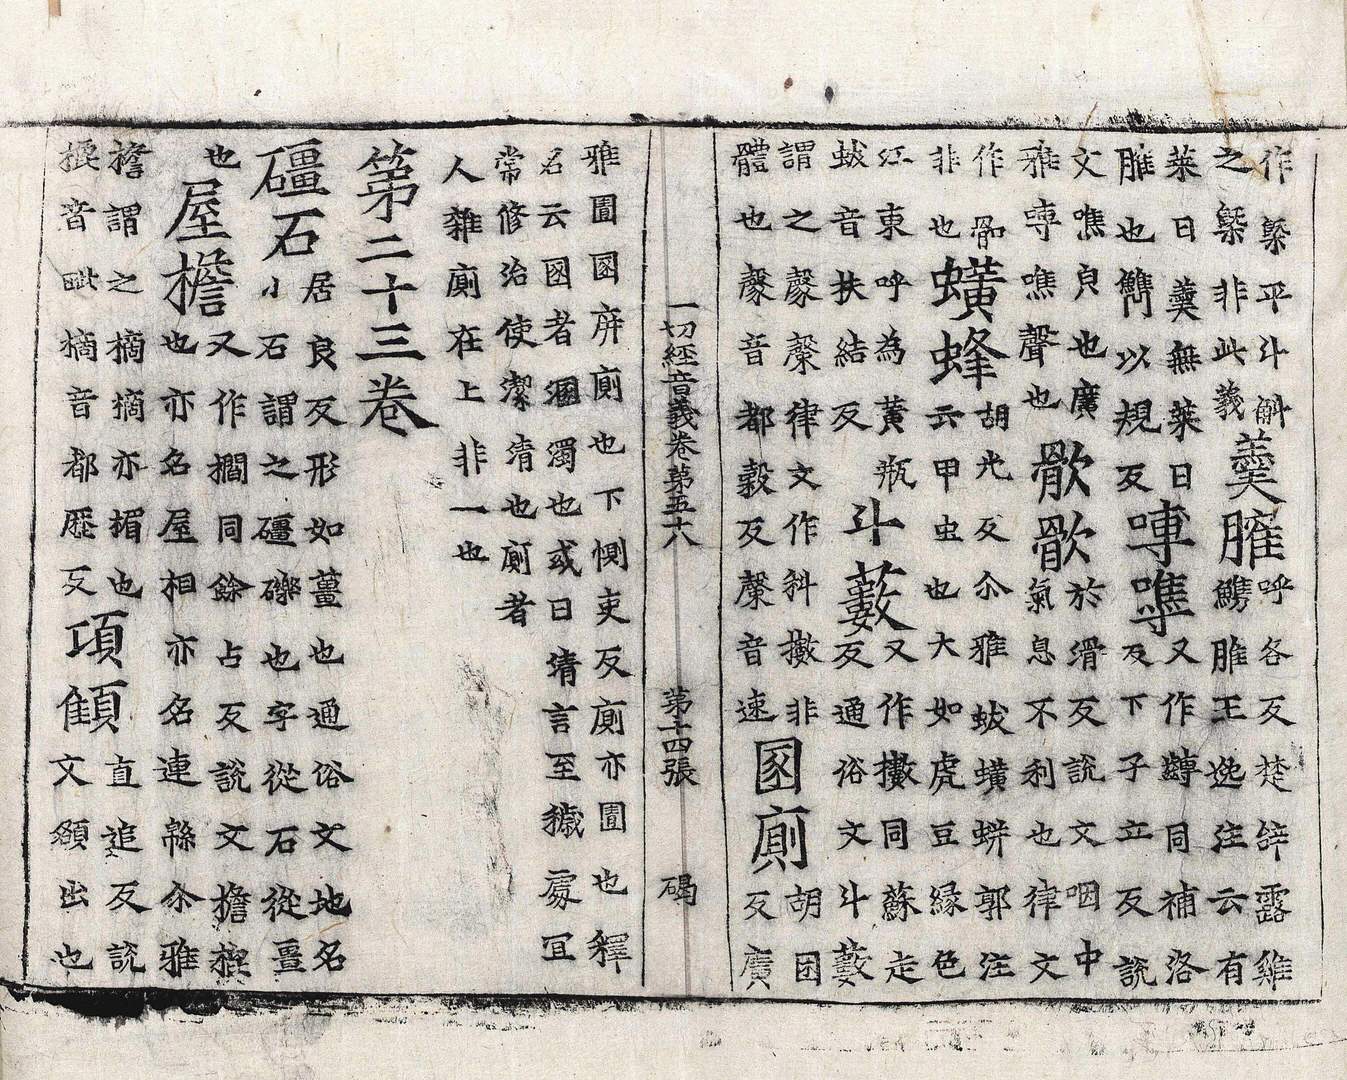 作槩平斗斛
之槩非此義
羹臛
呼各反楚辞露雞
臇臛王逸注云有
菜曰羹無菜曰
臛也臇以規反
嚩噍
又作同補洛
反下子立反説
文噍皃也廣
雅嚩噍聲也
於滑反説文咽中
氣息不利也律文
作
非也
蟥蜂
胡光反尒雅蛂蟥蛢郭注
云甲虫也大如虎豆緑色
江東呼為黃瓶
蛂音扶結反
斗藪
又作擻同蘇走
反通俗文斗藪
謂之律文作擻非
體也音都穀反音速
圂廁
胡困
反廣
一切經音義卷第五十八 第十四張 碣
雅圊圂庰廁也下惻吏反廁亦圊也釋
名云圂者溷濁也或曰清言至穢處宜
常修治使潔清也廁者
人雜廁在上非一也
第二十三卷
礓石
居良反形如薑也通俗文地名
小石謂之礓礫也字從石從畺
也
屋檐
又作櫩同餘占反説文檐㮰
也亦名屋梠亦名連緜尒雅
檐謂之樀樀亦楣也
㮰音毗樀音都歷反
項顀
直追反説
文額出也